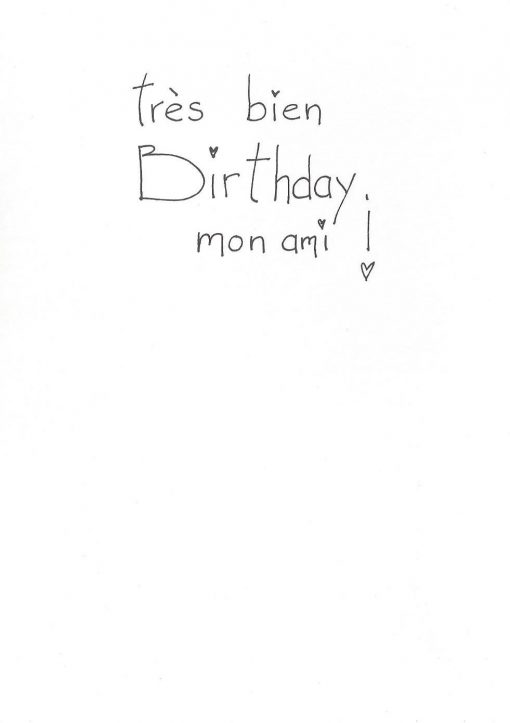 très bien
Birthday.
mon ami !